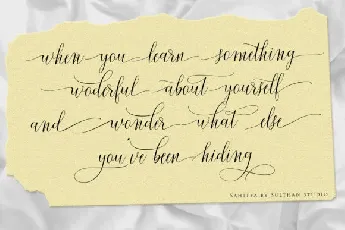 when you learn something
woderful about yourself
and wonder what else
you've been hiding